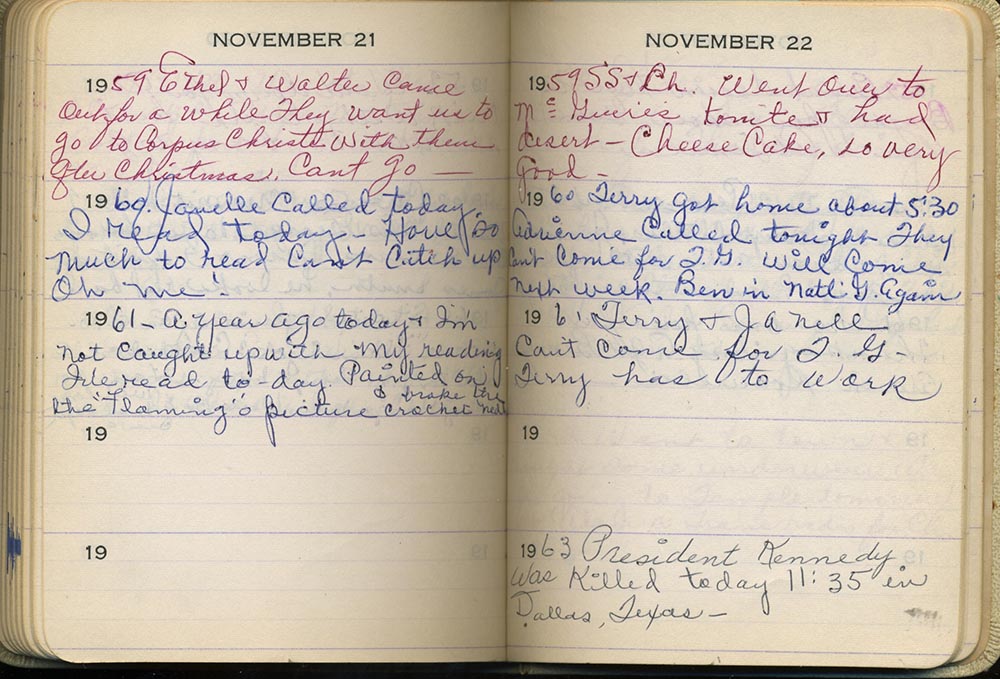 NOVEMBER 21
1959 Ethel & Walter Came
out for a while They want us to
go to Corpus Christi with them
after Christmas. Cant go —
1960. Janelle Called today.
I read today. Have so
much to read Can't Catch up
Oh me!
1961 - A year ago today & I'm
not caught up with my reading
I've read to-day. Painted on
the "Flaming" o picture & broke the crochet need
19
19
NOVEMBER 22
1959 SS & Ch. Went Over to
tonite & had
desert - Cheese Cake, so very
good -
1960 Terry got home about 5:30
Adrienne Called tonight They
cant Come for T.G. Will Come
next week. Ben in Natl G. Again
1961 Terry & Janell
Cant come for T.G-
Terry has to work
19
1963 President Kennedy
was Killed today 11:35 in
Dallas, Texas -